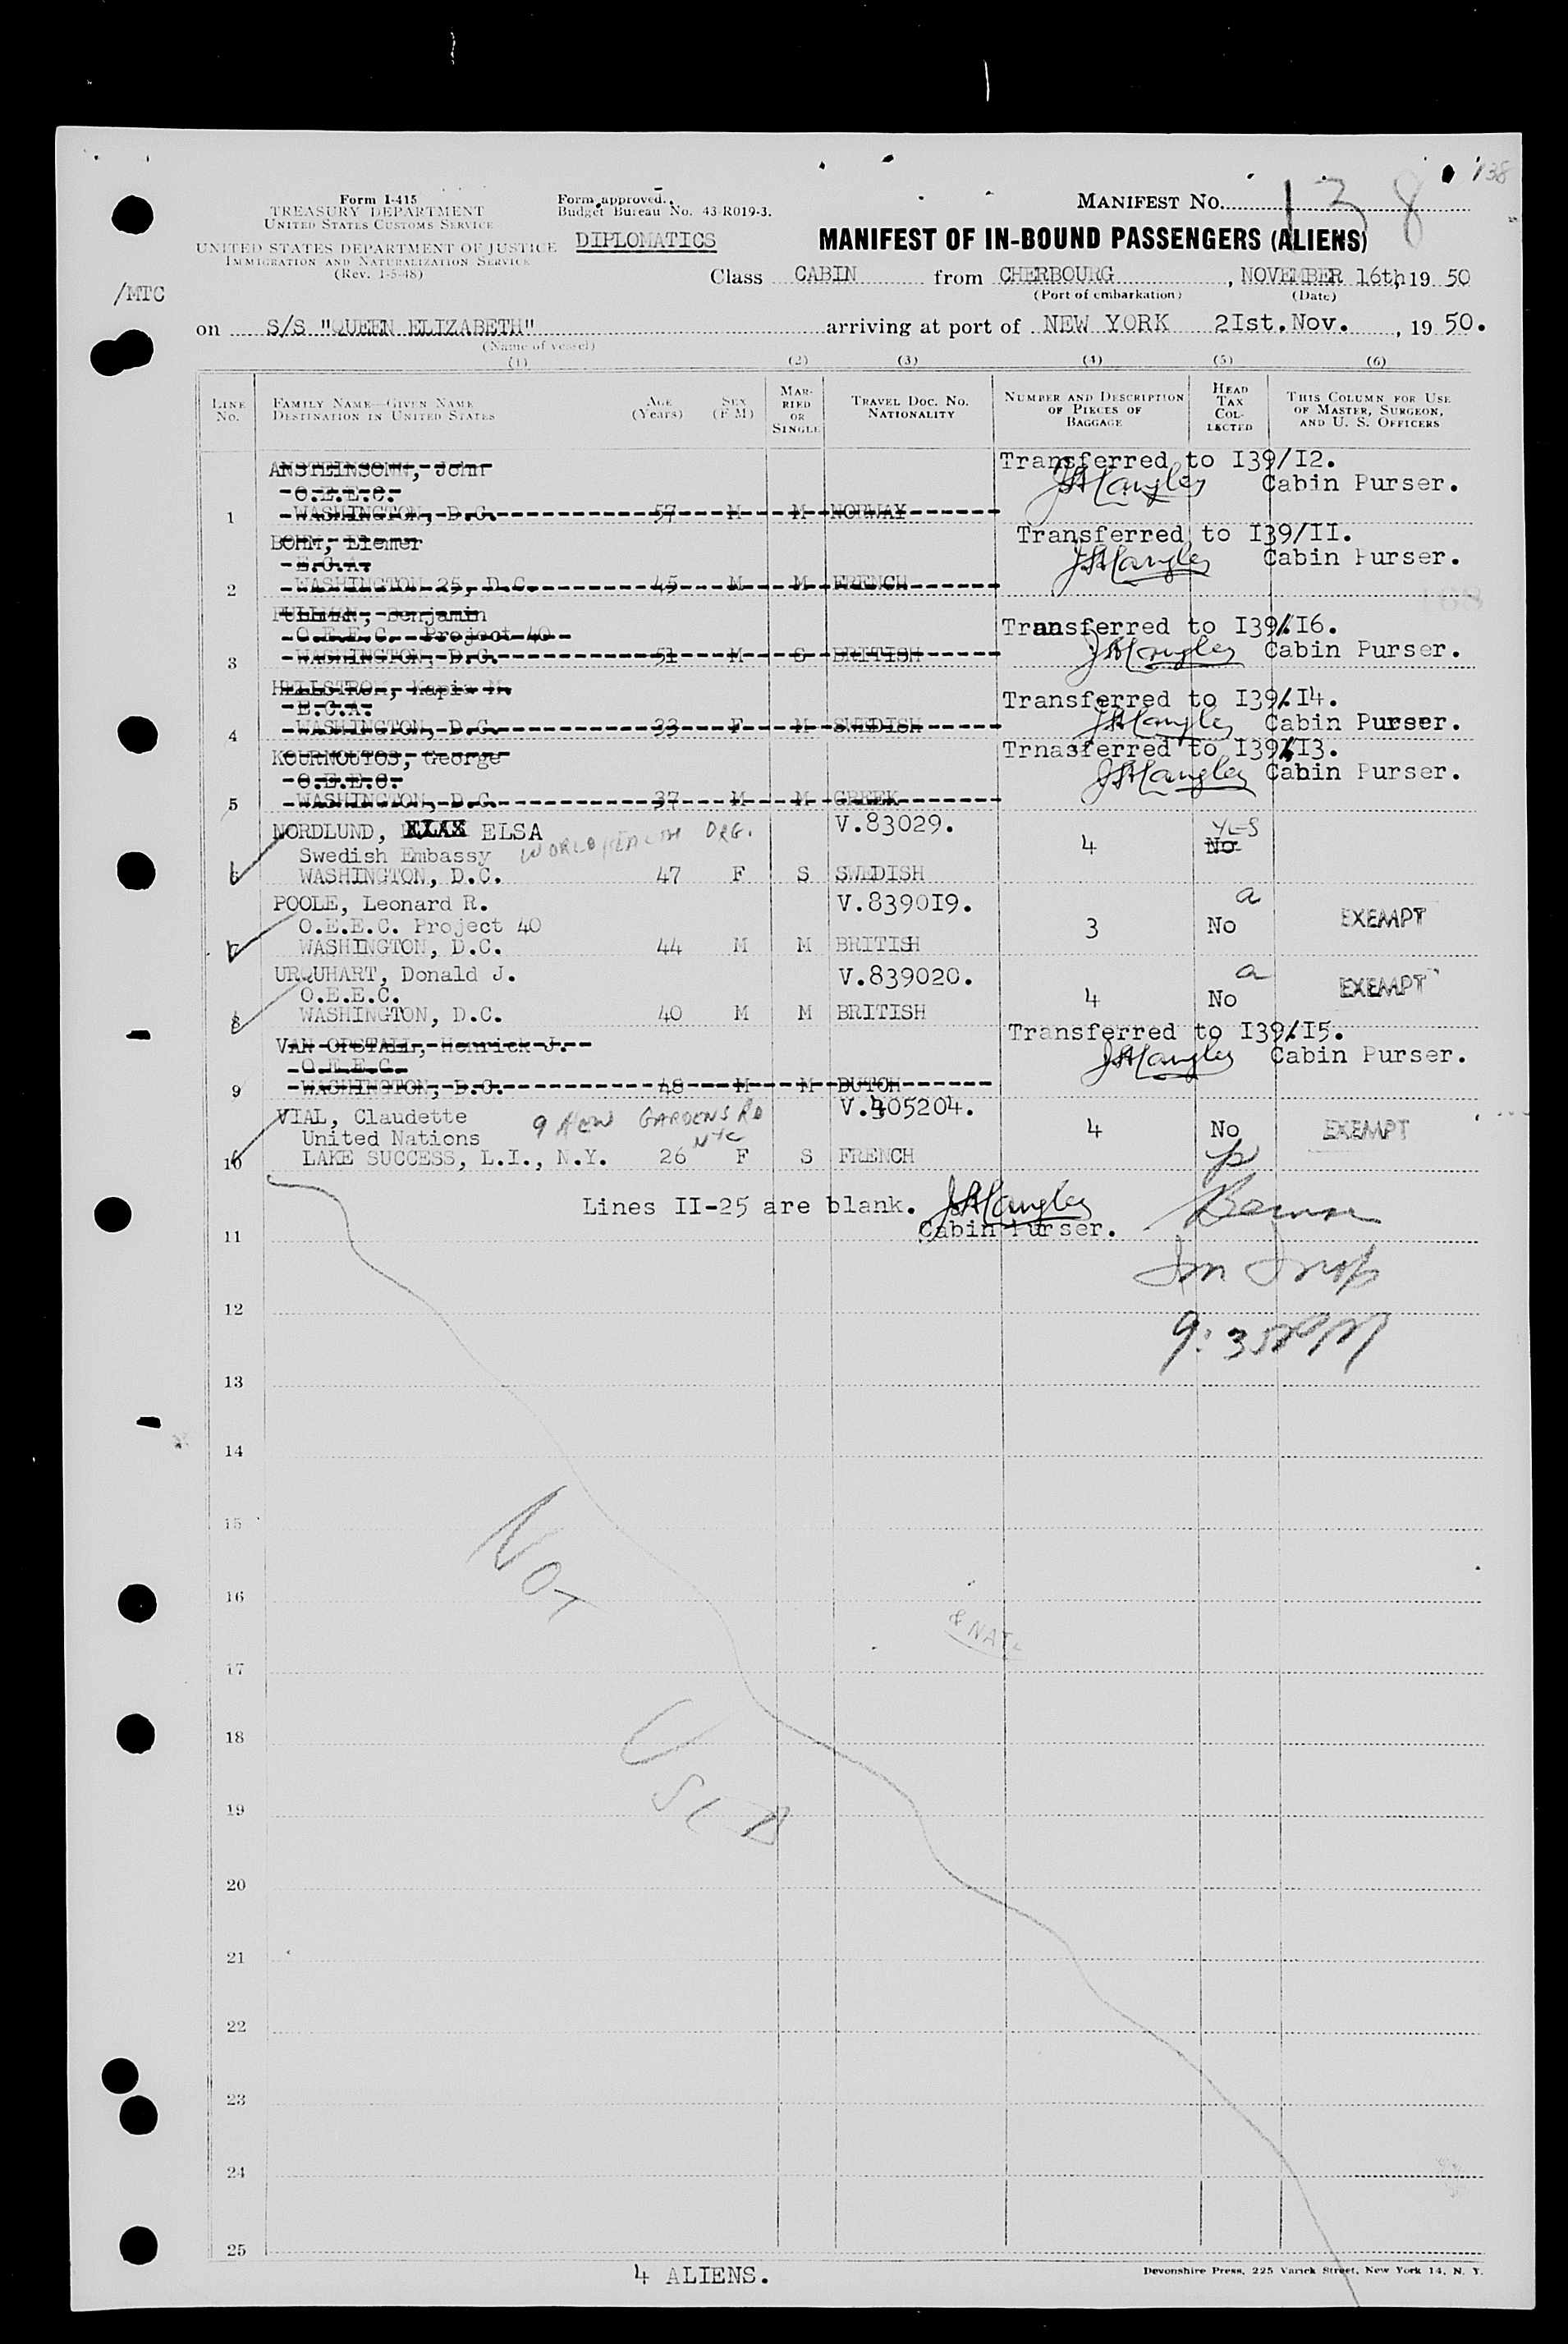 138
Form I-415
TREASURY DEPARTMENT
UNITED STATES CUSTOMS SERVICE
UNITED STATES DEPARTMENT OF JUSTICE
IMMIGRATION AND NATURALIZATION SERVICE
(Rev. 1-5-48)
Form approved.
Budget Bureau No. 43-R019-3.
DIPLOMATICS
MANIFEST NO. 138
MANIFEST OF IN-BOUND PASSENGERS (ALIENS)
/MTC
Class CABIN from CHERBOURG, NOVEMBER 16th, 19 50
(Port of embarkation) (Date)
on S/S "QUEEN ELIZABETH" arriving at port of NEW YORK 2Ist. Nov., 19 50.
(Name of vessel)
(1) (2) (3) (4) (5) (6)
LINE NO. FAMILY NAME—GIVEN NAME DESTINATION IN UNITED STATES AGE (Years) SEX (F M) MARRIED OR SINGLE TRAVEL DOC. NO. NATIONALITY NUMBER AND DESCRIPTION OF PIECES OF BAGGAGE HEAD TAX COLLECTED THIS COLUMN FOR USE OF MASTER, SURGEON, AND U. S. OFFICERS
ANSTEINSONN, John Transferred to I39/I2.
O.E.E.C. Cabin Purser.
1 WASHINGTON, D.C. 57 M M NORWAY
BOHM, Elemer Transferred to I39/II.
E.C.A. Cabin Purser.
2 WASHINGTON 25, D.C. 45 M M FRENCH
PULLMAN, Benjamin
O.E.E.C. Project 40 Transferred to I39/I6.
3 WASHINGTON, D.C. 51 M S BRITISH Cabin Purser.
HELLSTROM, Kapin M.
E.C.A. Transferred to I39/I4.
4 WASHINGTON, D.C. 33 F M SWEDISH Cabin Purser.
KOURMOUTOS, George Trnasferred to I39/I3.
O.E.E.C. Cabin Purser.
5 WASHINGTON, D.C. 37 M M GREEK
NORDLUND, ELSA V.83029.
Swedish Embassy WORLD HEALTH ORG. 4 No YES
6 WASHINGTON, D.C. 47 F S SWEDISH
POOLE, Leonard R. V.8390I9. a
O.E.E.C. Project 40 3 No EXEMPT
7 WASHINGTON, D.C. 44 M M BRITISH
URQUHART, Donald J. V.839020. a
O.E.E.C. 4 No EXEMPT
8 WASHINGTON, D.C. 40 M M BRITISH
VAN OPSTALL, Henrick J. Transferred to I39/I5.
O.E.E.C. Cabin Purser.
9 WASHINGTON, D.C. 48 M M DUTCH
VIAL, Claudette 9 Kew GARDENS RD V.405204.
United Nations NYC 4 No EXEMPT
10 LAKE SUCCESS, L.I., N.Y. 26 F S FRENCH
Lines II-25 are blank.
Cabin Purser.
11
12
9:35 PM
13
14
15
NOT
16
& NAT.
17
18
USED
19
20
21
22
23
24
25
4 ALIENS.
Devonshire Press, 225 Varick Street, New York 14, N. Y.